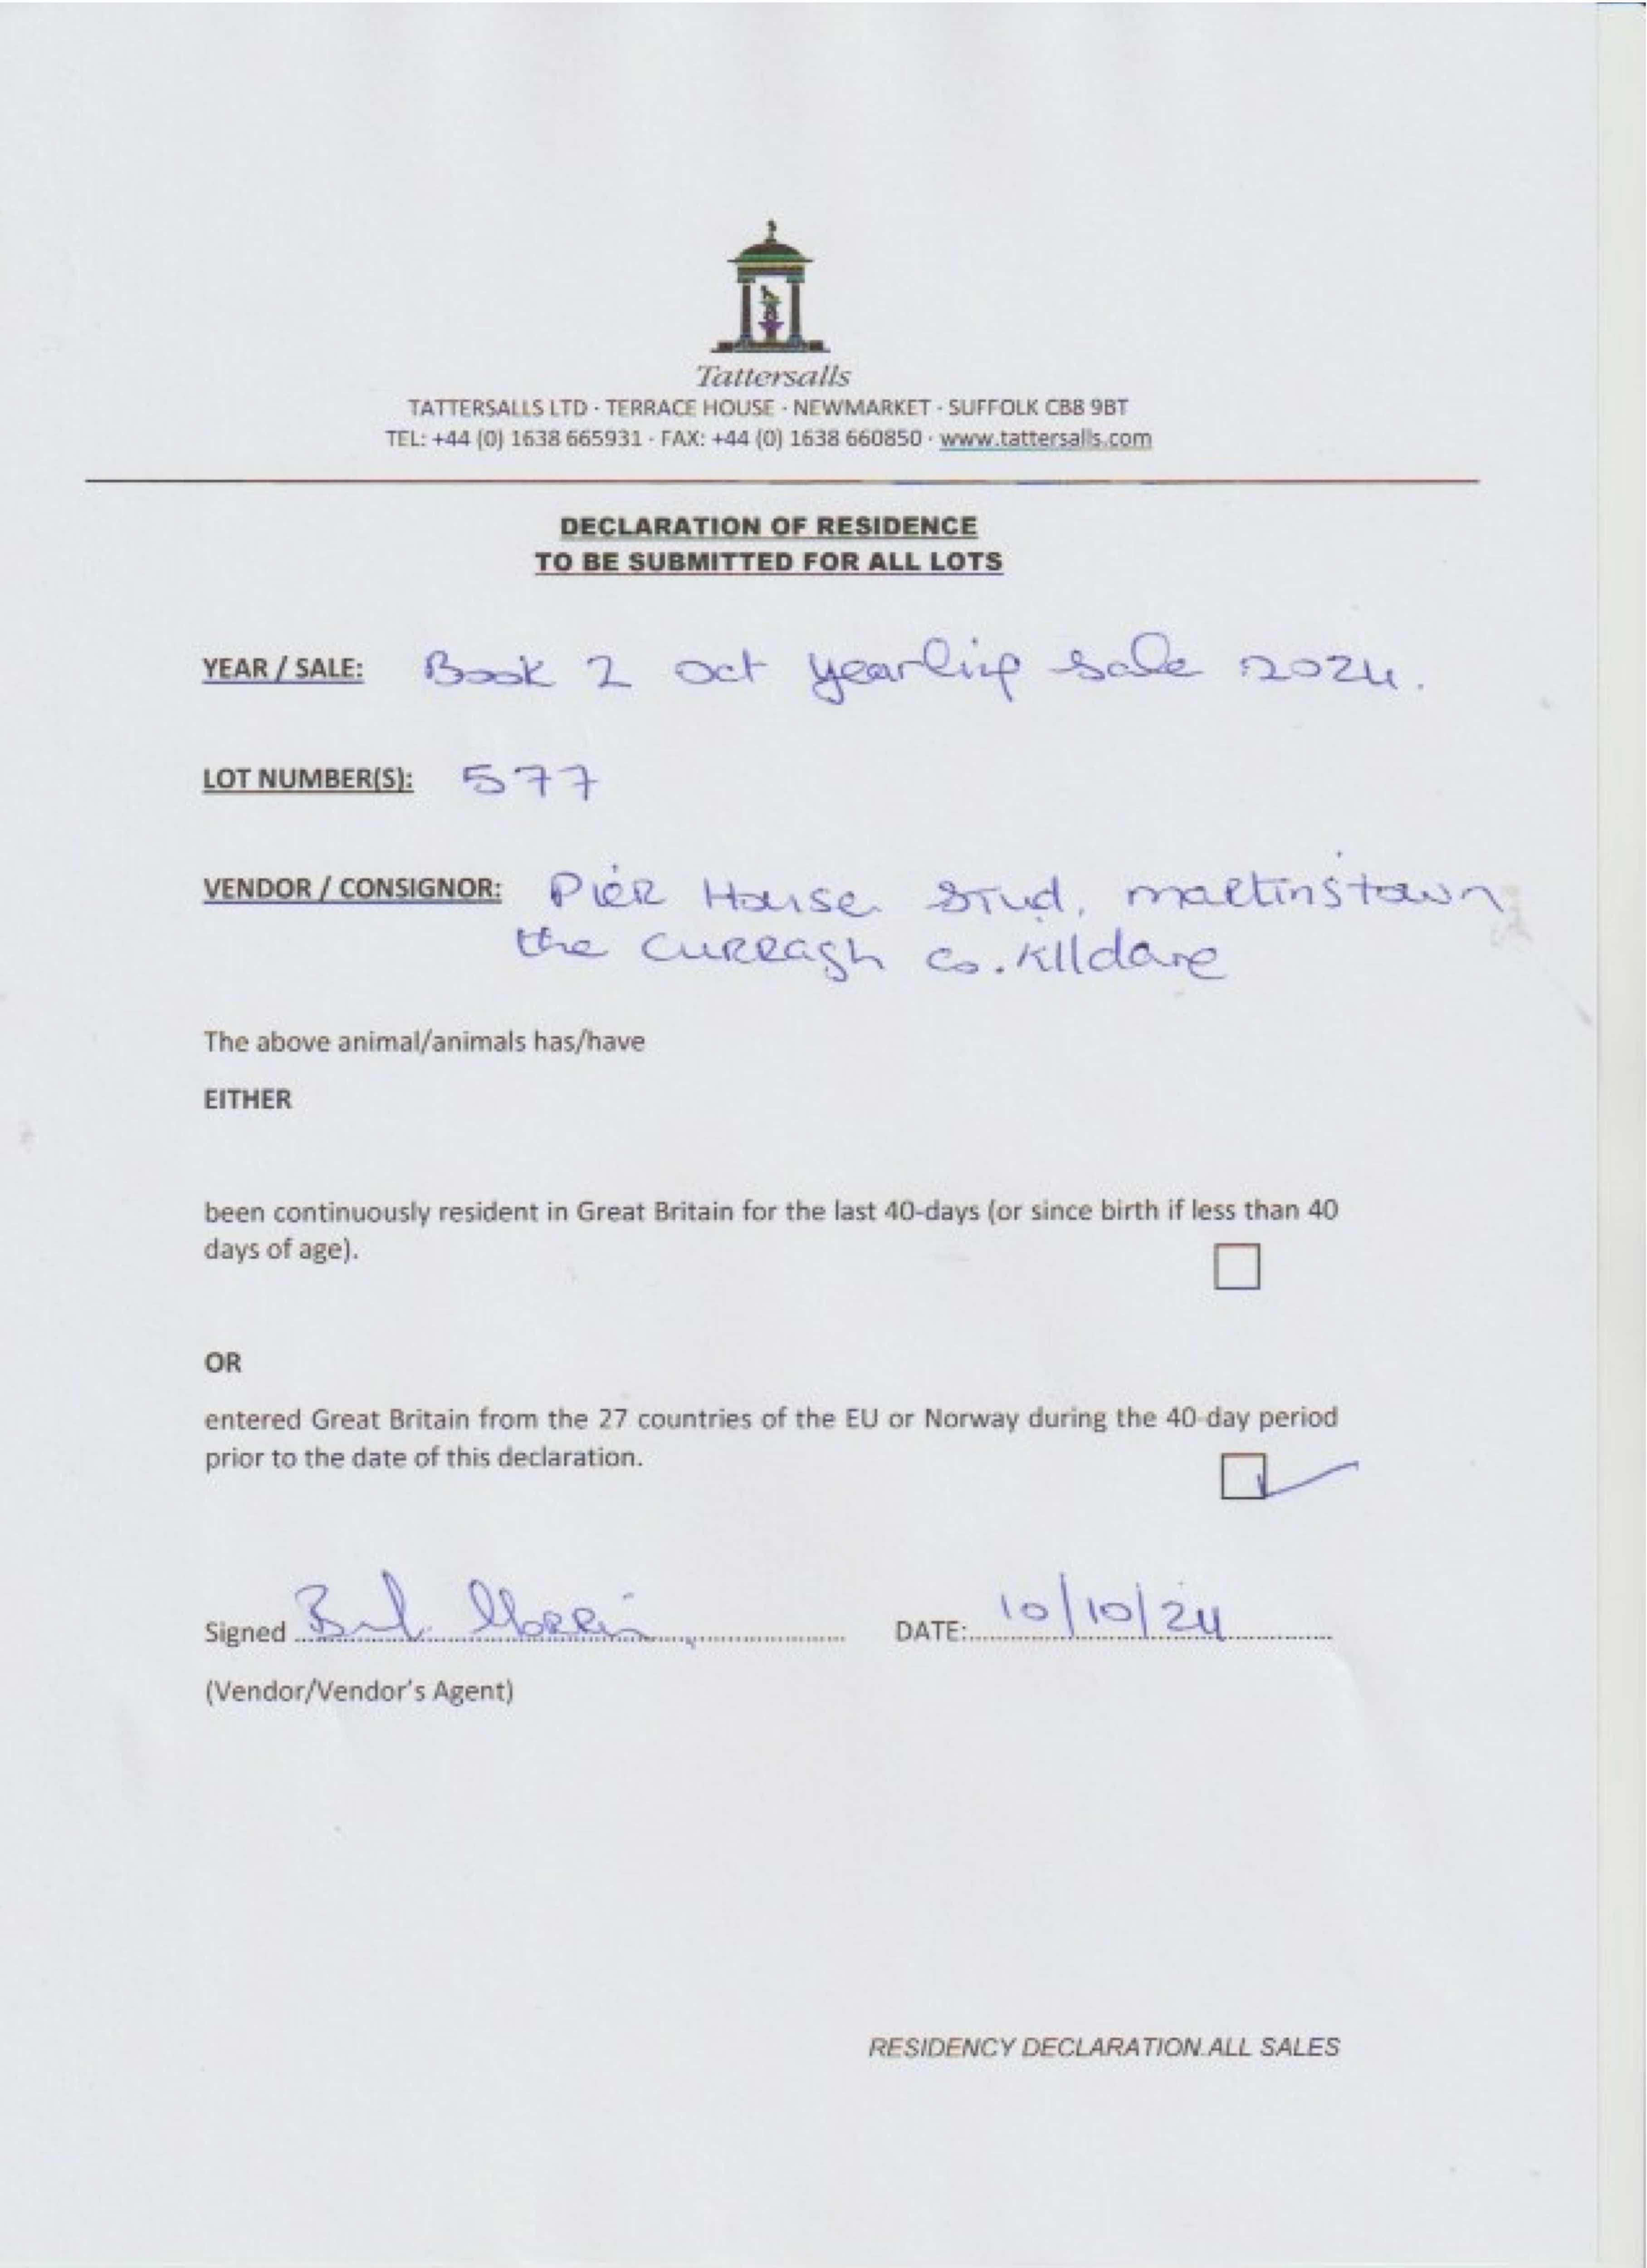 Tattersalls
TATTERSALLS LTD · TERRACE HOUSE · NEWMARKET · SUFFOLK CB8 9BT
TEL: +44 (0) 1638 665931 · FAX: +44 (0) 1638 660850 · www.tattersalls.com
DECLARATION OF RESIDENCE
TO BE SUBMITTED FOR ALL LOTS
YEAR / SALE: Book 2 Oct yearling Sale 2024.
LOT NUMBER(S): 577
VENDOR / CONSIGNOR: Pier House Stud, Martinstown
the Curragh Co. Kildare
The above animal/animals has/have
EITHER
been continuously resident in Great Britain for the last 40-days (or since birth if less than 40
days of age).
OR
entered Great Britain from the 27 countries of the EU or Norway during the 40-day period
prior to the date of this declaration.
Signed DATE: 10/10/24
(Vendor/Vendor's Agent)
RESIDENCY DECLARATION.ALL SALES